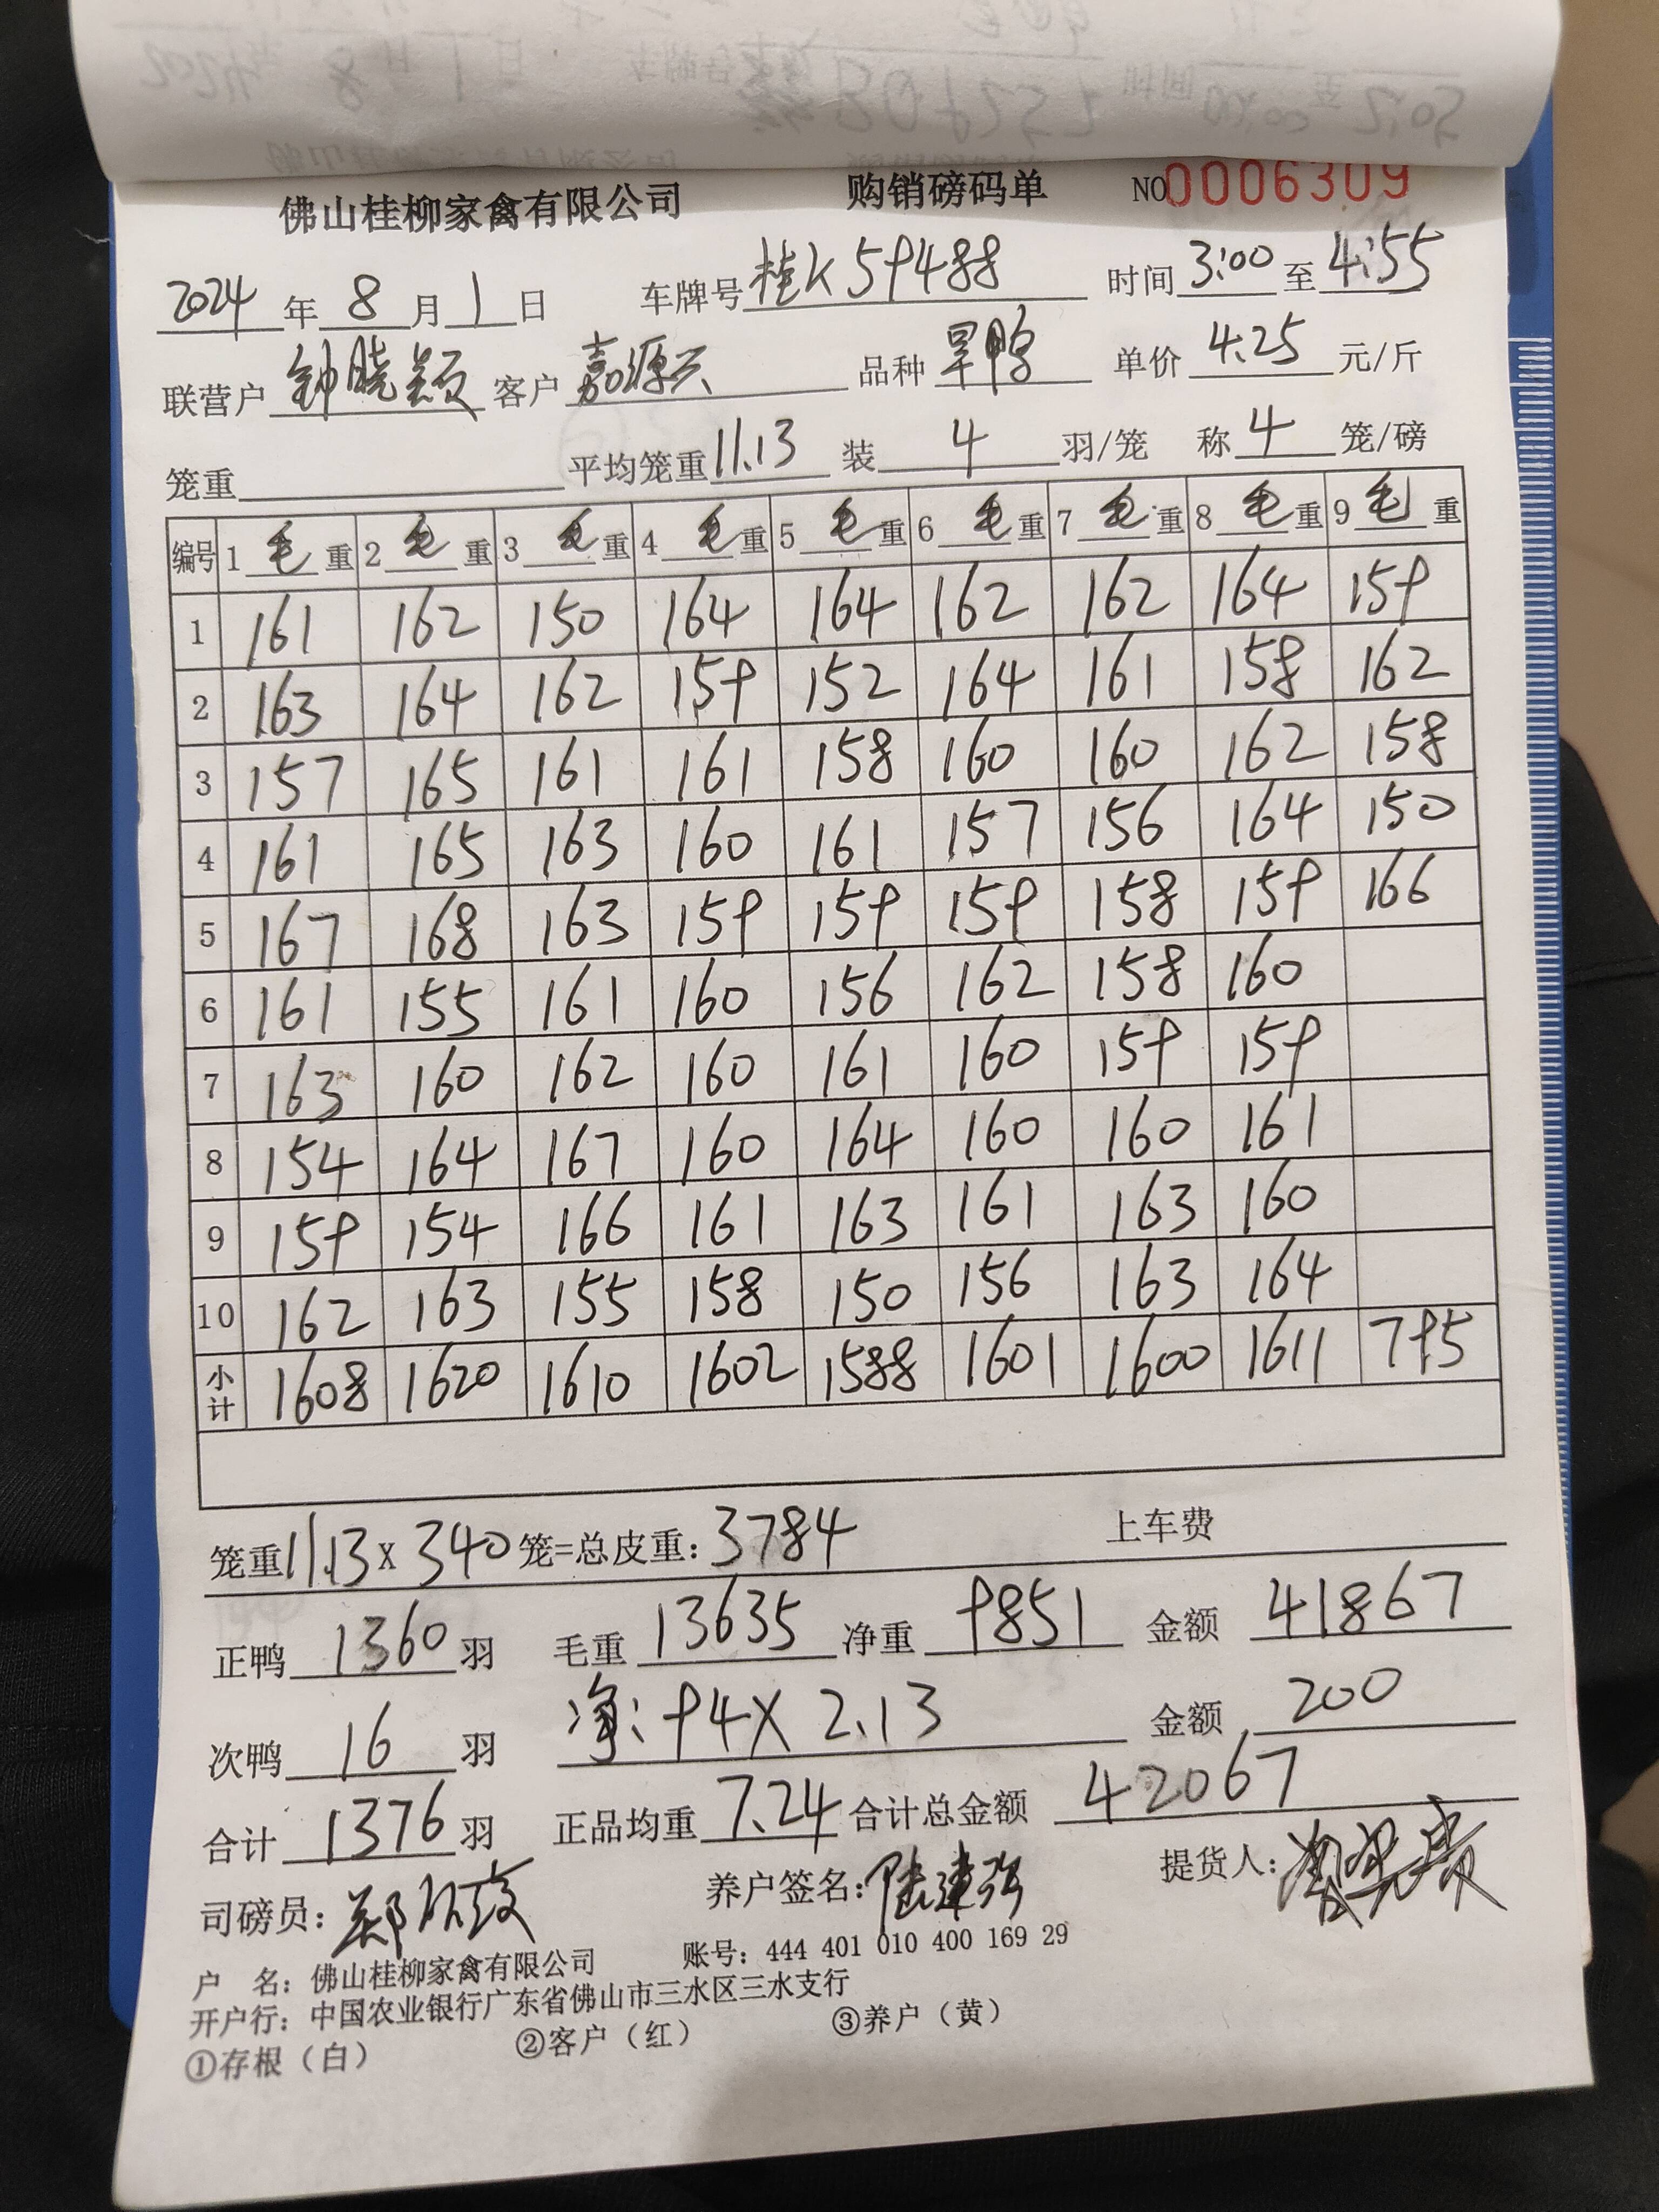 佛山桂柳家禽有限公司 购销磅码单 NO 0006309
2024 年 8 月 1 日 车牌号 桂K59488 时间 3:00 至 4:55
联营户 钟晓颖 客户 嘉源兴 品种 旱鸭 单价 4.25 元/斤
笼重 平均笼重 11.13 装 4 羽/笼 称 4 笼/磅
编号 1 毛 重 2 毛 重 3 毛 重 4 毛 重 5 毛 重 6 毛 重 7 毛 重 8 毛 重 9 毛 重
1 161 162 150 164 164 162 162 164 159
2 163 164 162 159 152 164 161 158 162
3 157 165 161 161 158 160 160 162 158
4 161 165 163 160 161 157 156 164 150
5 167 168 163 159 159 159 158 159 166
6 161 155 161 160 156 162 158 160
7 163 160 162 160 161 160 159 159
8 154 164 167 160 164 160 160 161
9 159 154 166 161 163 161 163 160
10 162 163 155 158 150 156 163 164
小计 1608 1620 1610 1602 1588 1601 1600 1611 795
笼重 11.13 x 340 笼=总皮重: 3784 上车费
正鸭 1360 羽 毛重 13635 净重 9851 金额 41867
次鸭 16 羽 净: 94X 2.13 金额 200
合计 1376 羽 正品均重 7.24 合计总金额 42067
司磅员: 养户签名: 陆建强 提货人:
户 名: 佛山桂柳家禽有限公司 账号: 444 401 010 400 169 29
开户行: 中国农业银行广东省佛山市三水区三水支行
①存根（白） ②客户（红） ③养户（黄）